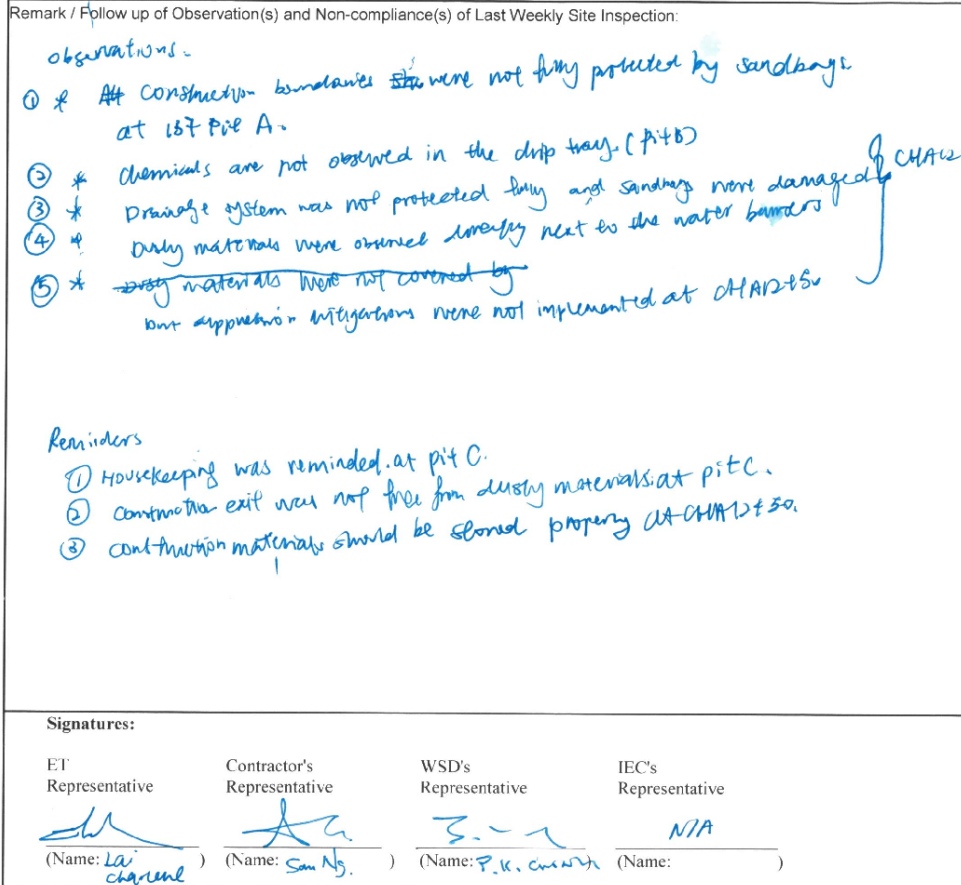 Remark / Follow up of Observation(s) and Non-compliance(s) of Last Weekly Site Inspection:
observations.
① * construction boundaries were not fully protected by sandbags
at 137 Pit A.
② * chemicals are not observed in the drip tray. (pit B)
③ * Drainage system was not protected fully and sandbags were damaged CHA12
④ * Dusty materials were observed next to the water barriers
⑤ * Dusty materials were not covered by
suppression mitigations were not implemented at CHA12+50
Reminders
① Housekeeping was reminded. at pit C.
② Construction exit was not free from dusty materials at pit C.
③ construction materials should be stored properly at CHA12+50.
Signatures:
ET Contractor's WSD's IEC's
Representative Representative Representative Representative
N/A
(Name: Lai ) (Name: Sam Ng. ) (Name: P.K. ) (Name: )
Charlene